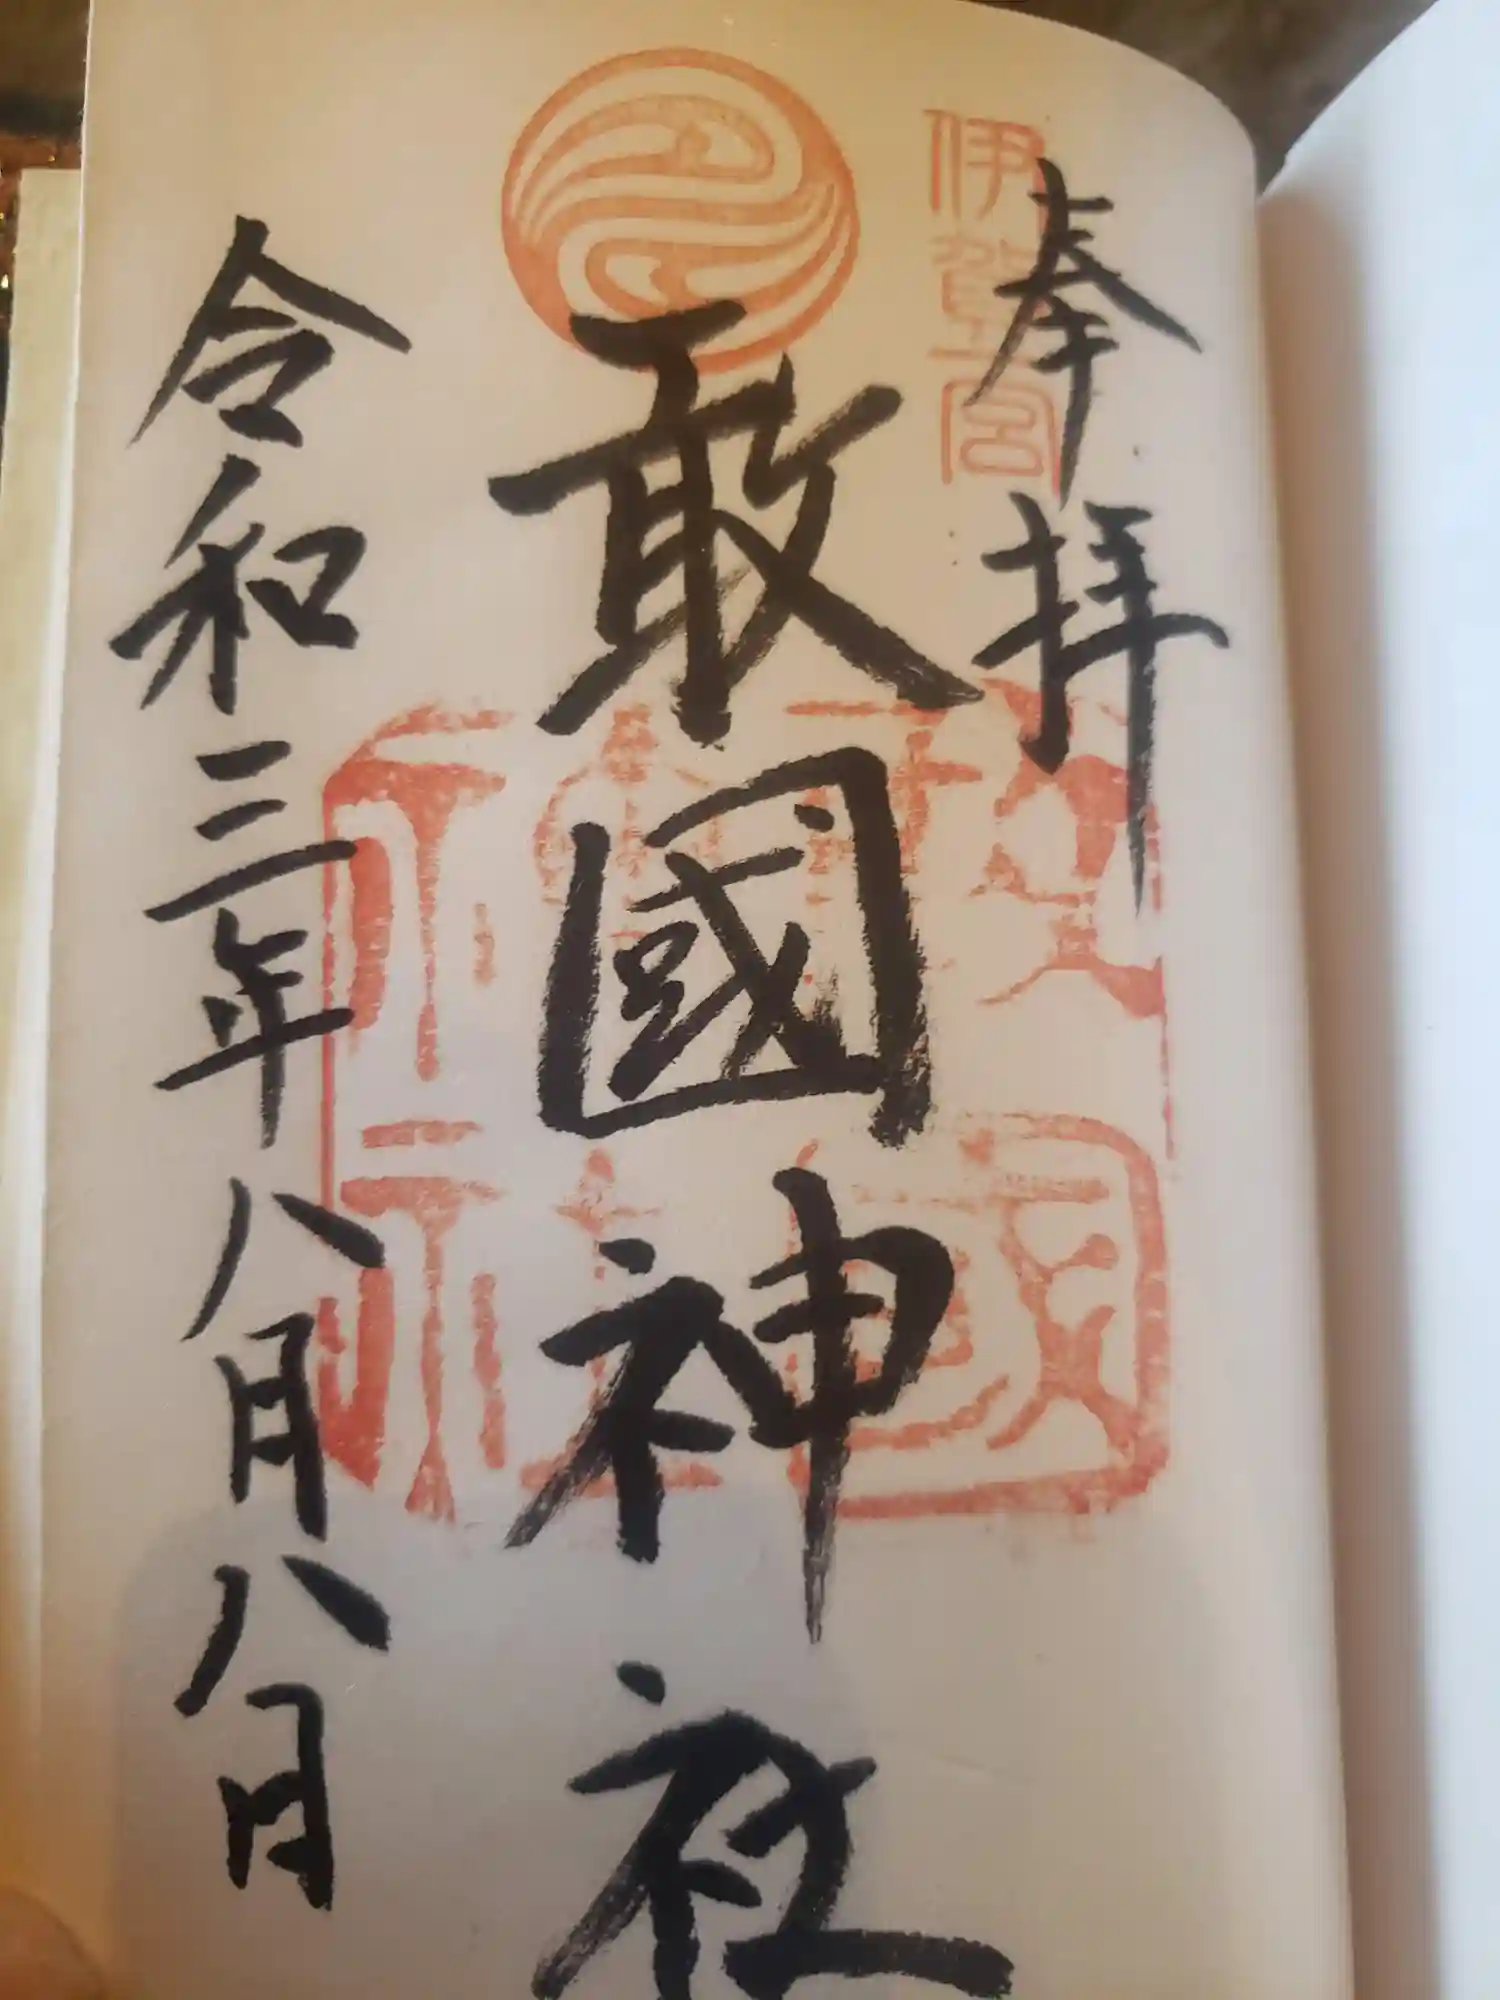 奉拝
伊賀一宮
敢國神社
令和三年八月八日